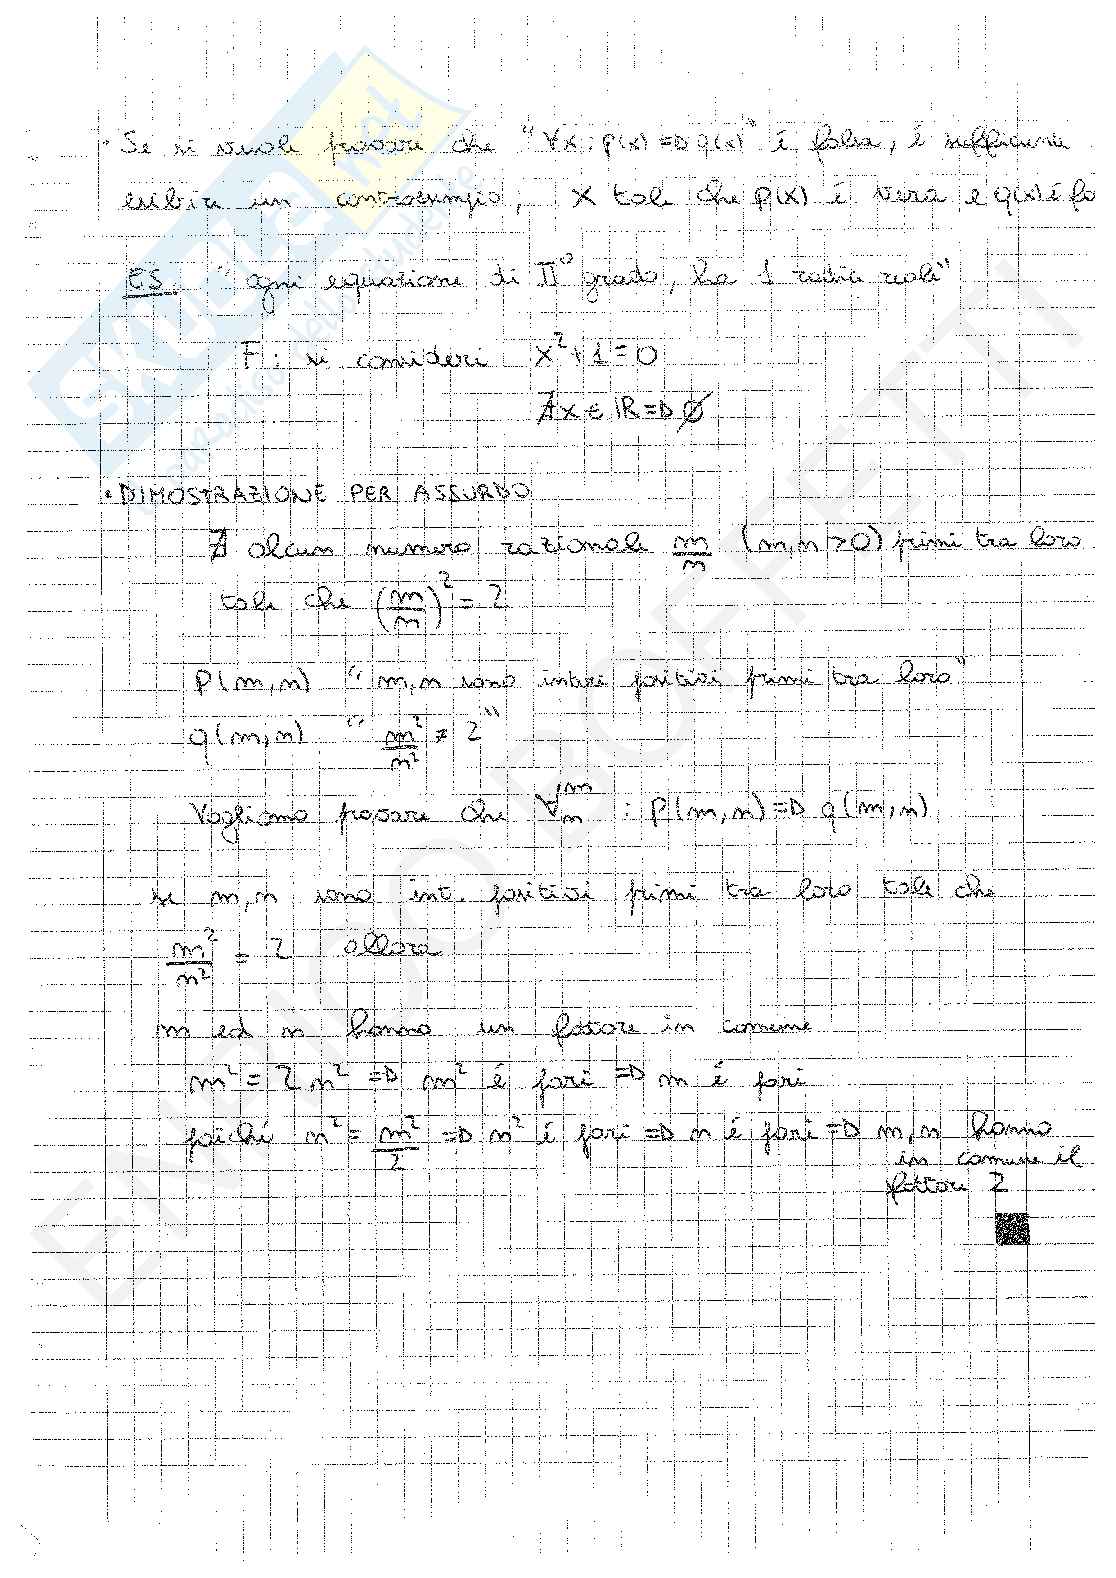 • Se si vuole provare che "∀x: p(x) ⇒ q(x)" é falsa, é sufficiente
esibire un controesempio, x tale che p(x) é vera e q(x) é fa
ES. "ogni equazione di II° grado, ha 1 radice reale"
F: si consideri x²+1=0
∄x ∈ ℝ ⇒ ∅
• DIMOSTRAZIONE PER ASSURDO
∄ alcun numero razionale m/n (m,n>0) primi tra loro
tale che (m/n)² = 2
P(m,n) "m,n sono interi positivi primi tra loro"
q(m,n) "m²/n² ≠ 2"
Vogliamo provare che ∀m/n : P(m,n) ⇒ q(m,n)
se m,n sono int. positivi primi tra loro tale che
m²/n² = 2 allora
m ed n hanno un fattore in comune
m² = 2n² ⇒ m² é pari ⇒ m é pari
poiché n² = m²/2 ⇒ n² é pari ⇒ n é pari ⇒ m,n hanno
in comune il
fattore 2